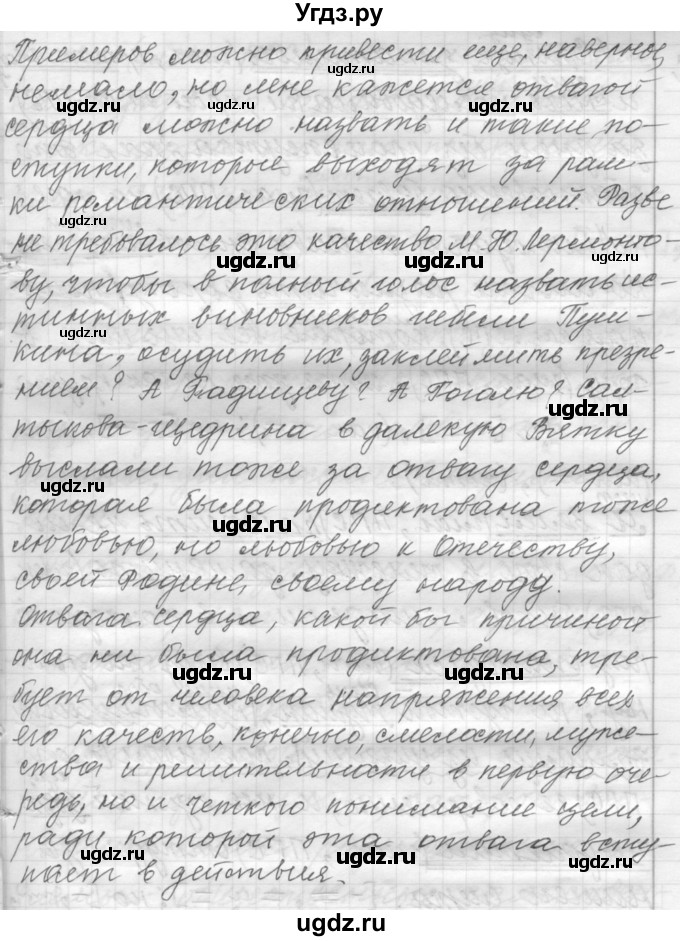 Угдз.ру
Примеров можно привести еще, наверное,
немало, но мне кажется отвагой
сердца можно назвать и такие по-
ступки, которые выходят за рам-
ки романтических отношений. Разве
не требовалось это качество М.Ю. Лермонто-
ву, чтобы в полный голос назвать ис-
тинных виновников гибели Пуш-
кина, осудить их, заклеймить презре-
нием? А Радищеву? А Гоголю? Сал-
тыкова-Щедрина в далекую Вятку
выслали тоже за отвагу сердца,
которая была продиктована тоже
любовью, но любовью к Отечеству,
своей Родине, своему народу.
Отвага сердца, какой бы причиной
она ни была продиктована, тре-
бует от человека напряжения всех
его качеств, конечно, смелости, муже-
ства и решительности в первую оче-
редь, но и четкого понимание цели,
ради которой эта отвага всту-
пает в действия.
ugdz.ru